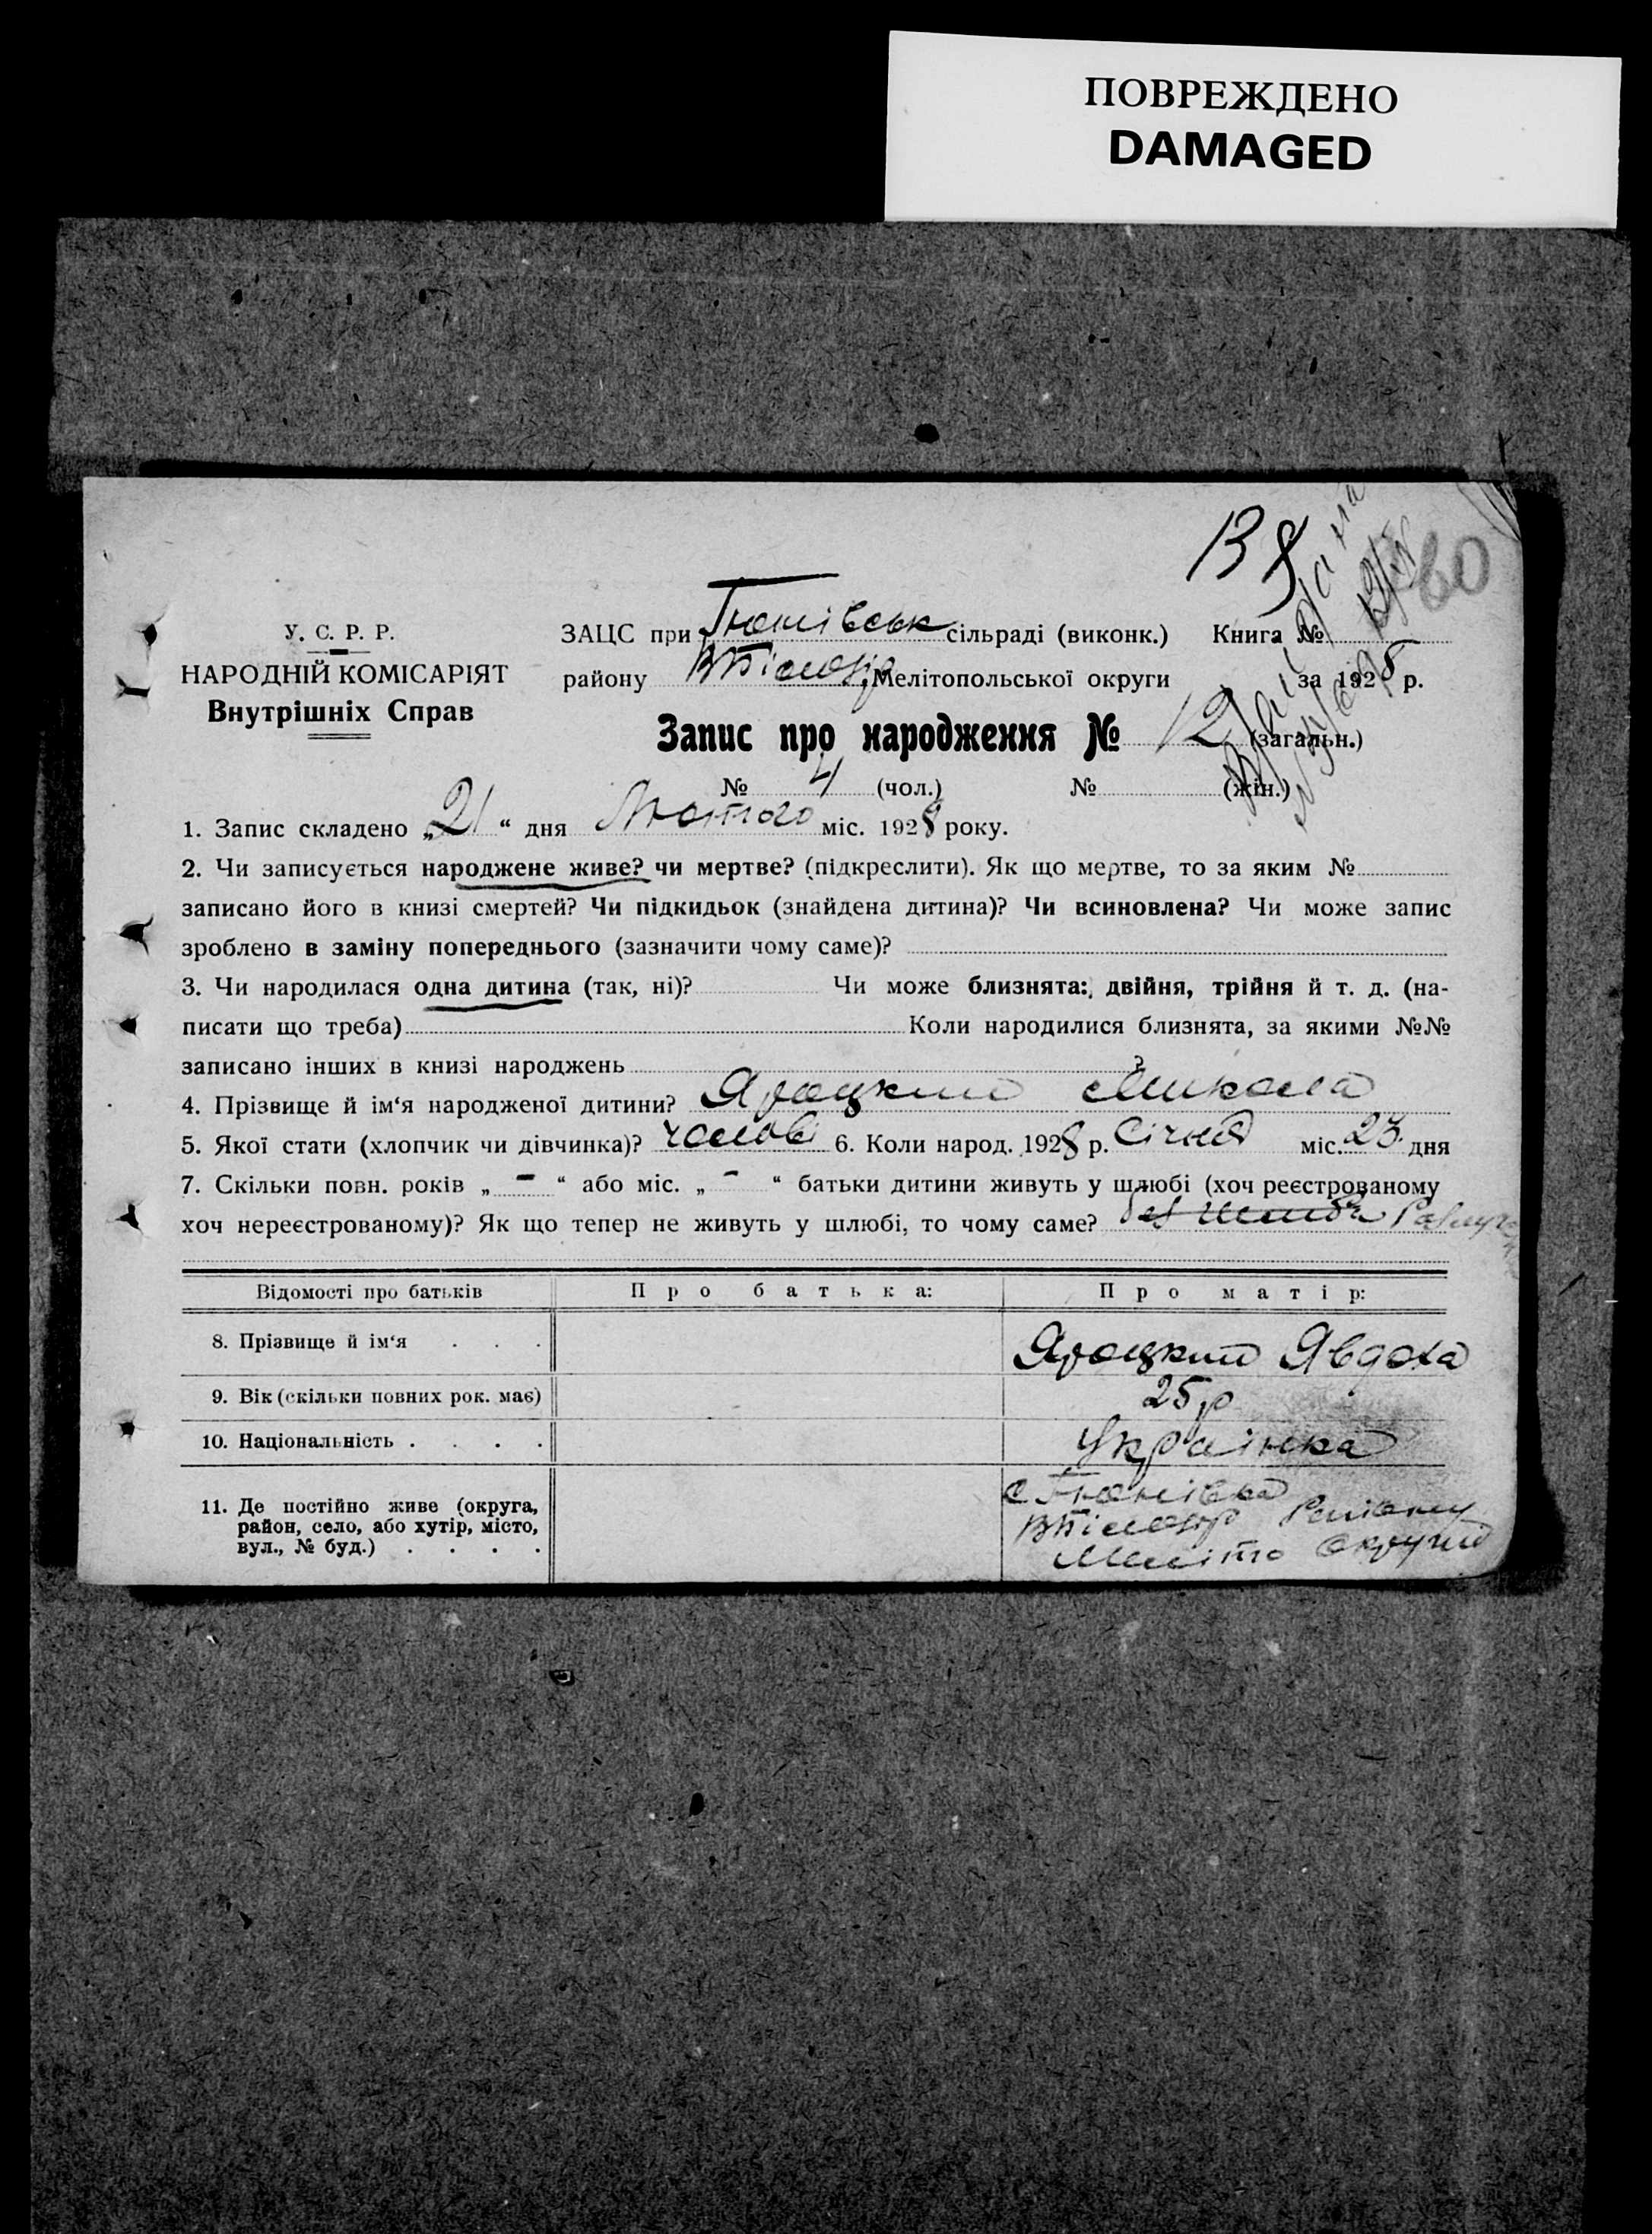 ПОВРЕЖДЕНО
DAMAGED
138
60
У. С. Р. Р.
НАРОДНІЙ КОМІСАРІЯТ
Внутрішніх Справ
ЗАЦС при Тюнівськ сільраді (виконк.) Книга №
району ВБілозір Мелітопольської округи за 1928 р.
Запис про народження № 12 (загальн.)
№ 4 (чол.) № (жін.)
1. Запис складено „21“ дня Лютого міс. 1928 року.
2. Чи записується народжене живе? чи мертве? (підкреслити). Як що мертве, то за яким №
записано його в книзі смертей? Чи підкидьок (знайдена дитина)? Чи всиновлена? Чи може запис
зроблено в заміну попереднього (зазначити чому саме)?
3. Чи народилася одна дитина (так, ні)? Чи може близнята: двійня, трійня й т. д. (на-
писати що треба) Коли народилися близнята, за якими №№
записано інших в книзі народжень ?
4. Прізвище й ім‘я народженої дитини? Яроцкий Микола
5. Якої стати (хлопчик чи дівчинка)? чолові 6. Коли народ. 1928 р. Січня міс. 23 дня
7. Скільки повн. років „ - “ або міс. „ - “ батьки дитини живуть у шлюбі (хоч реєстрованому
хоч нереєстрованому)? Як що тепер не живуть у шлюбі, то чому саме?
Відомості про батьків Про батька: Про матір:
8. Прізвище й ім‘я . . . Яроцкий Явдоха
9. Вік (скільки повних рок. має) 25 р
10. Національність . . . . Українка
11. Де постійно живе (округа,
район, село, або хутір, місто,
вул., № буд.) . . . .
ВБілозір Району
Меліто Округи